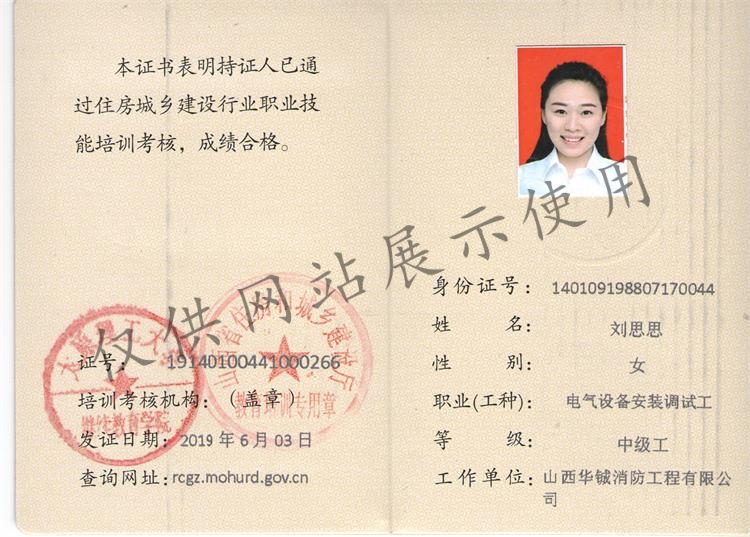 本证书表明持证人已通
过住房城乡建设行业职业技
能培训考核，成绩合格。
证号：19140100441000266
培训考核机构：（盖章）
发证日期：2019 年 6 月 03 日
查询网址：rcgz.mohurd.gov.cn
山西省住房和城乡建设厅
教育培训专用章
继续教育学院
仅供网站展示使用
身份证号：140109198807170044
姓 名：刘思思
性 别：女
职业(工种)：电气设备安装调试工
等 级：中级工
工作单位：山西华铖消防工程有限公
司